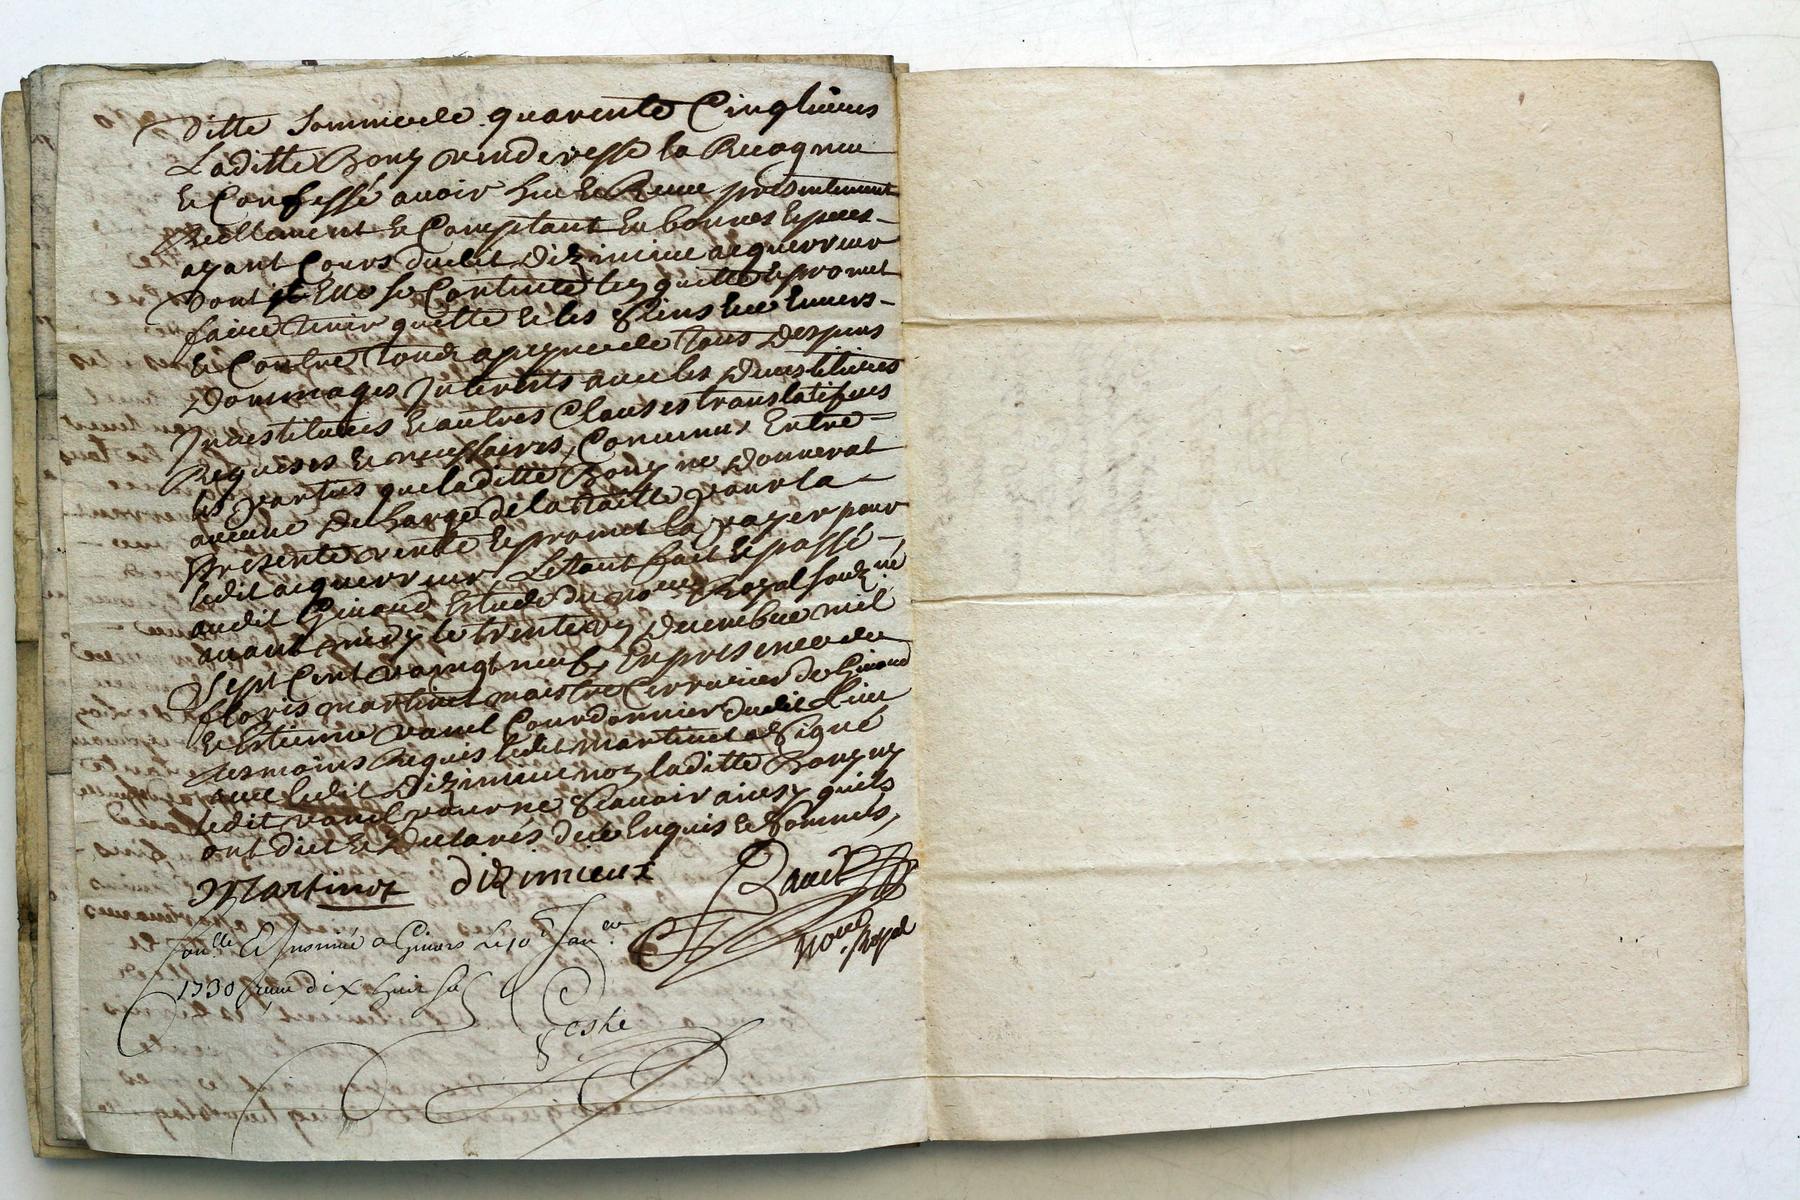 ditte Somme de quarente Cinq livres
Laditte Bony venderesse la Recogneu
et Confessé avoir heu et Receu présentement
Reellement et Comptant en bonnes Espèces
ayant Cours dudit Dizimieu acquerreur
Dont Elle se Contente len quitte et promet
faire tenir quitte et les Siens luy Envers
et Contre tous a peyne de tous Despens
Dommages Interests avec les Devestitures
Investitures et autres Clauses translatifves
Requises et necessaires, Convenus Entre
les parties que laditte Bony ne donnerat
aucune decharge de la taille pour la
presente vente et promet la payer pour
ledit acquerreur, Cétant fait et passé
audit Givord Estude du no.re Royal souz.né
avant midy le trente un Decembre mil
Sept Cent vaingt neufs En présence de
floris martinet maistre Cerrurier de Givord
et Estienne vanel Courdonnier dudit Lieu
tesmoins Requis ledit martinet a Signé
avec ledit Dizimieu non laditte Bony ny
ledit vanel pour ne Scavoir ainsy quils
ont dict et Declarés de ce Enquis et Sommés,
Martinet dizimieux
no.re Royal
Con.lle et Insinué a Givors Le 10e Jan.er
1730 Receu dix huit sols
Coste